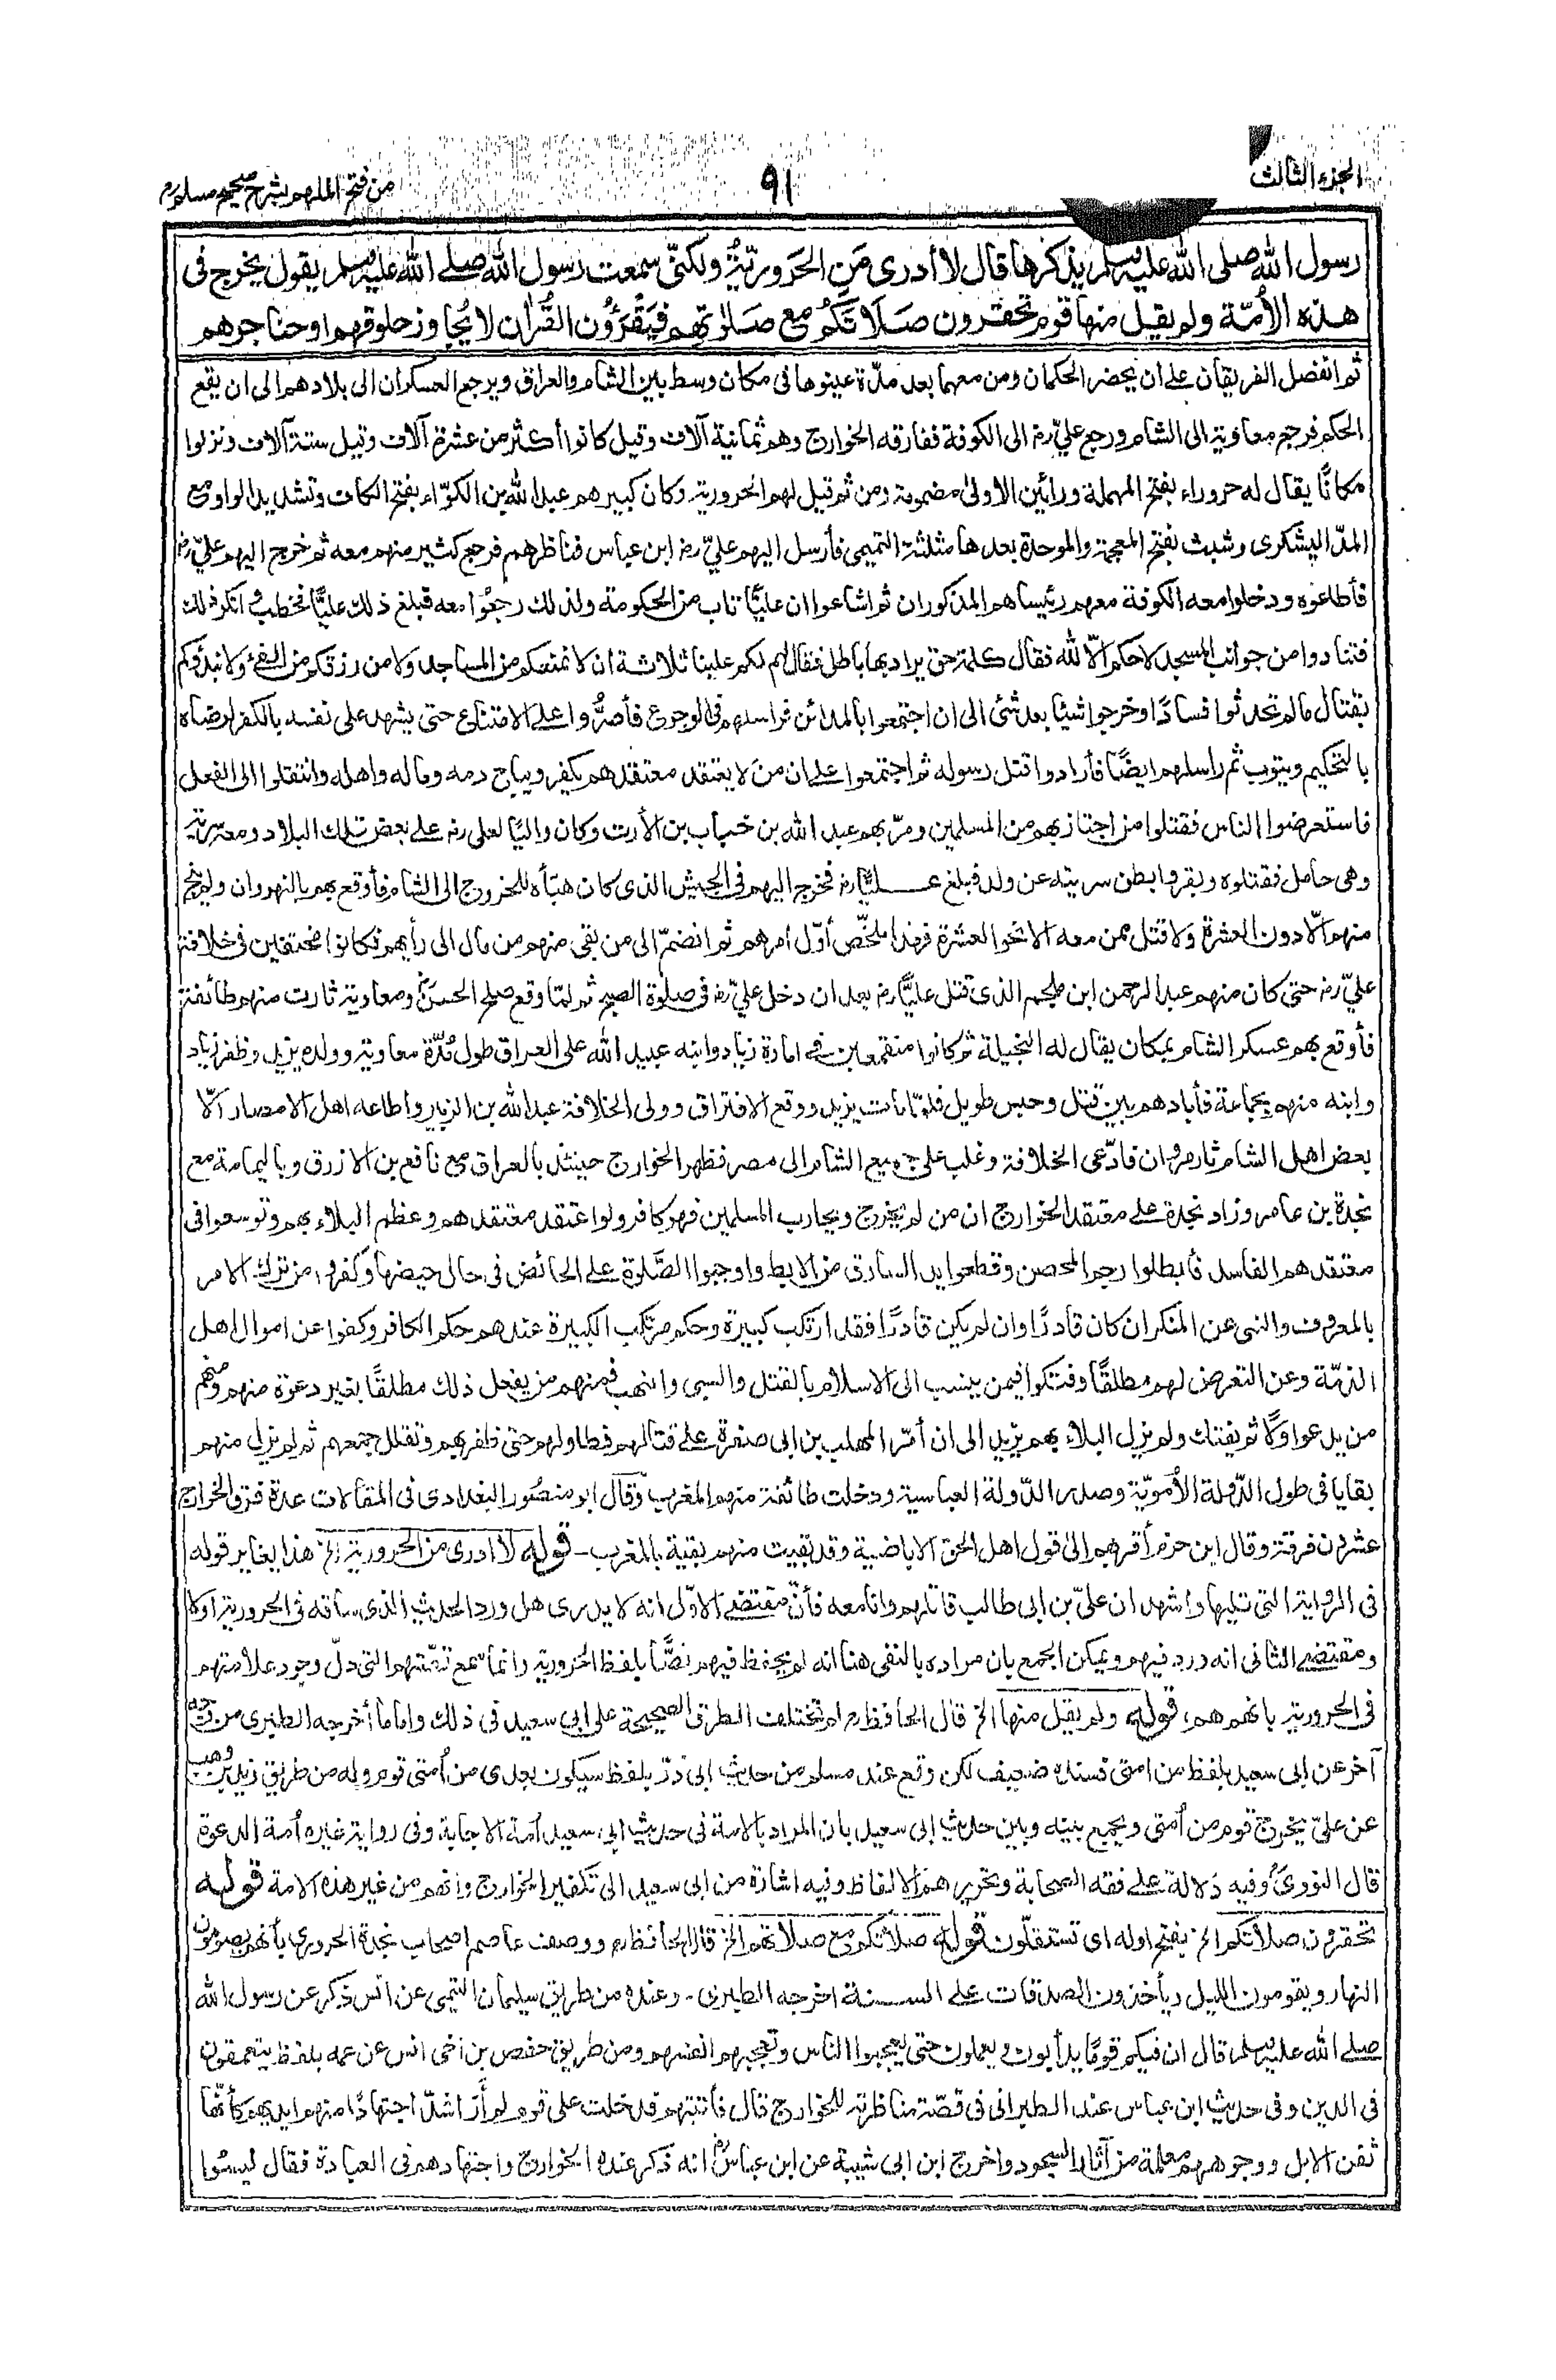 الجزء الثالث
٩١
من فتح الملهم بشرح صحيح مسلم
رسول الله صلى الله عليه وسلم يذكرها قال لا أدرى مَنِ الحَروريّةُ ولكنّى سمعت رسول الله صلے الله عليه وسلم يقول يخرج فى
هذه الأمّة ولم يقل منها قوم تحقرون صلَاتَكُم مع صلوٰتهم فيَقْرَؤُون القُراٰن لا يُجاوز حلوقهم او حناجرهم
ثم انفصل الفريقان علے ان يحضر الحكمان ومن معهما بعد مدّة عينوها فى مكان وسط بين الشام والعراق ويرجع العسكران الى بلادهم الى ان يقع
الحكم فرجع معاوية الى الشام ورجع علىّ رض الى الكوفة ففارقه الخوارج وهم ثمانية آلاف وقيل كانوا أكثر من عشرة آلاف وقيل ستة آلاف ونزلوا
مكانًا يقال له حروراء بفتح المهملة ورائين الاولىٰ مضمومة ومن ثم قيل لهم الحرورية وكان كبيرهم عبد الله بن الكوّاء بفتح الكاف وتشديد الواو مع
المدّ اليشكرى وشبث بفتح المعجمة والموحدة بعدها مثلثة التميمى فأرسل اليهم علىّ رض ابن عباس فناظرهم فرجع كثير منهم معه ثم خرج اليهم علىّ رض
فأطاعوه ودخلوا معه الكوفة معهم رئيساهم المذكوران ثم اشاعوا ان عليًّا تاب من الحكومة ولذلك رجعُوا معه فبلغ ذلك عليًّا فخطب وانكر ذلك
فتنادوا من جوانب المسجد لا حكم الّا لله فقال كلمة حق يراد بها باطل فقال لهم لكم علينا ثلاثة ان لا نمنعكم من المساجد ولا من رزقكم من الفئ ولا نبدؤكم
بقتال ما لم تحدثوا فسادًا وخرجوا شيئًا بعد شئى الى ان اجتمعوا بالمدائن فراسلهم فى الرجوع فأصرُّوا علے الامتناع حتى يشهد على نفسه بالكفر لرضاه
بالتحكيم ويتوب ثم راسلهم ايضًا فأرادوا قتل رسوله ثم اجتمعوا علے ان منَ لا يعتقد معتقدهم يكفر ويباح دمه وماله واهله وانتقلوا الى الفعل
فاستعرضوا الناس فقتلوا من اجتاز بهم من المسلمين ومرّ بهم عبد الله بن خباب بن الأرت وكان واليًا لعلى رض علے بعض تلك البلاد ومعه سرية
وهى حامل فقتلوه وبقروا بطن سريته عن ولد فبلغ عــليًّا رض فخرج اليهم فى الجيش الذى كان هيّأه للخروج الى الشام فأوقع بهم بالنهروان ولم ينج
منهم الّا دون العشرة ولا قتل ممن معه الا نحو العشرة فهذا ملخّص أوّل أمرهم ثم انضمّ الى من بقى منهم من مال الى رأيهم فكانوا مختفين فى خلافة
علىّ رض حتى كان منهم عبد الرحمن ابن ملجم الذى قتل عليًّا رض بعد ان دخل علىّ رض فى صلوٰة الصبح ثم لمّا وقع صلح الحسن ومعاوية ثارت منهم طائفة
فأوقع بهم عسكر الشام بمكان يقال له النجيلة ثم كانوا منقمعين فے امارة زياد وابنه عبيد الله على العراق طول مُدّة معاوية وولده يزيد وظفر زياد
وابنه منهم بجماعة فأبادهم بين قتل وحبس طويل فلمّا مات يزيد ووقع الافتراق وولى الخلافة عبد الله بن الزبير واطاعه اهل الامصار الّا
بعض اهل الشام ثار مروان فادّعى الخلافة وغلب على جميع الشام الى مصر فظهر الخوارج حينئذ بالعراق مع نافع بن الازرق وباليمامة مع
نجدة بن عامر وزاد نجدة علے معتقد الخوارج ان من لم يخرج ويحارب المسلمين فهو كافر ولو اعتقد معتقدهم وعظم البلاء بهم وتوسعوا فى
معتقدهم الفاسد فأبطلوا رجم المحصن وقطعوا يد السارق من الابط واوجبوا الصَّلوٰة علے الحائض فى حال حيضها وكفروا من ترك الامر
بالمعروف والنهى عن المنكر ان كان قادرًا وان لم يكن قادرًا فقد ارتكب كبيرة وحكم مرتكب الكبيرة عندهم حكم الكافر وكفوا عن اموال اهل
الذمّة وعن التعرض لهم مطلقًا وفتكوا فيمن ينسب الى الاسلام بالقتل والسبى والنهب فمنهم من يفعل ذلك مطلقًا بغير دعوة منهم ومنهم
من يدعوا وّلًا ثم يفتك ولم يزل البلاء بهم يزيد الى ان أمّر المهلب بن ابى صفرة علے قتالهم فطاولهم حتى ظفر بهم وتقلل جمعهم ثم لم يزل منهم
بقايا فى طول الدّولة الأمويّة وصدر الدّولة العباسية ودخلت طائفة منهم المغرب وقال ابو منصُور البغدادى فى المقالات عدة فرق الخوارج
عشرون فرقة وقال ابن حزم أقربهم الىٰ قول اهل الحق الاباضية وقد بقيت منهم بقية بالمغرب - قوله لا ادرى من الحرورية الخ هذا يغاير قوله
فى الرواية التى تليها وأشهد ان علىّ بن ابى طالب قاتلهم وانا معه فأنّ مقتضے الاوّل انه لا يدرى هل ورد الحديث الذى ساقه فى الحرورية اولا
ومقتضے الثانى انه ورد فيهم ويمكن الجمع بان مراده بالنفى هنا انه لم يحفظ فيهم نصًّا بلفظ الحرورية وانما سمع قصّتهم التى دلّ وجود علامتهم
فى الحرورية بانهم هم، قوله ولم يقل منها الخ قال الحافظ رح لم تختلف الطرق الصحيحة على ابى سعيد فى ذلك واما ما أخرجه الطبرى من وجه
آخر عن ابى سعيد بلفظ من امتى فسنده ضعيف لكن وقع عند مسلم من حديث ابى ذرّ بلفظ سيكون بعدى من أمتى قوم وله من طريق زيد بن وهب
عن علىّ يخرج قوم من أمتى ويجمع بينه وبين حديث ابى سعيد بان المراد بالامة فى حديث ابى سعيد أمة الاجابة وفى رواية غيره أمة الدعوة
قال النووىؒ وفيه دَلالة علے فقه الصحابة وتحريرهم الالفاظ وفيه اشارة من ابى سعيد الى تكفير الخوارج وانهم من غير هذه الامة قوله
تحقرون صلاتكم الخ بفتح اوله اى تستقلّون قوله صلاتكم مع صلاتهم الخ قال الحافظ رح ووصف عاصم اصحاب نجدة الحرورى بأنهم يصومون
النهار ويقومون الليل ويأخذون الصدقات علے الســنة اخرجه الطبرى - وعنده من طريق سليمان التيمى عن انس ذكر عن رسول الله
صلے الله عليه وسلم قال ان فيكم قومًا يدأبون ويعملون حتى يعجبوا الناس وتعجبهم انفسهم ومن طريق حفص بن اخى انس عن عمه بلفظ يتعمقون
فى الدين وفى حديث ابن عباس عند الطبرانى فى قصّة مناظرته للخوارج قال فأتيتهم فدخلت على قوم لم أَرَ اشدّ اجتهادًا منهم ايديهم كأنّها
ثفن الابل ووجوههم معلمة من آثار السجود واخرج ابن ابى شيبة عن ابن عباس انه ذكر عنده الخوارج واجتهادهم فى العبادة فقال ليسُوا